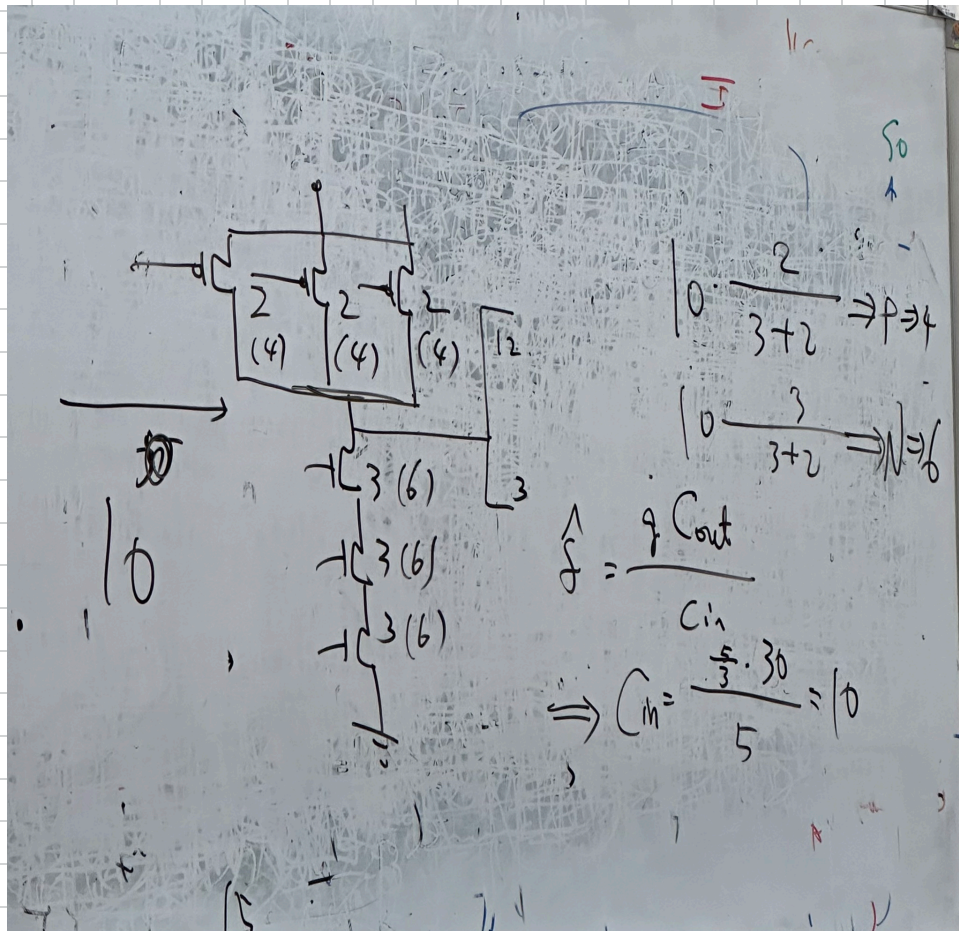 So
2 2 2
(4) (4) (4)
12
3 (6)
3
3 (6)
3 (6)
10
10 · 2/(3+2) ⇒ P ⇒ 4
10 3/(3+2) ⇒ N ⇒ 6
f̂ = g Cout / Cin
⇒ Cin = (5/3 · 30)/5 = 10
15